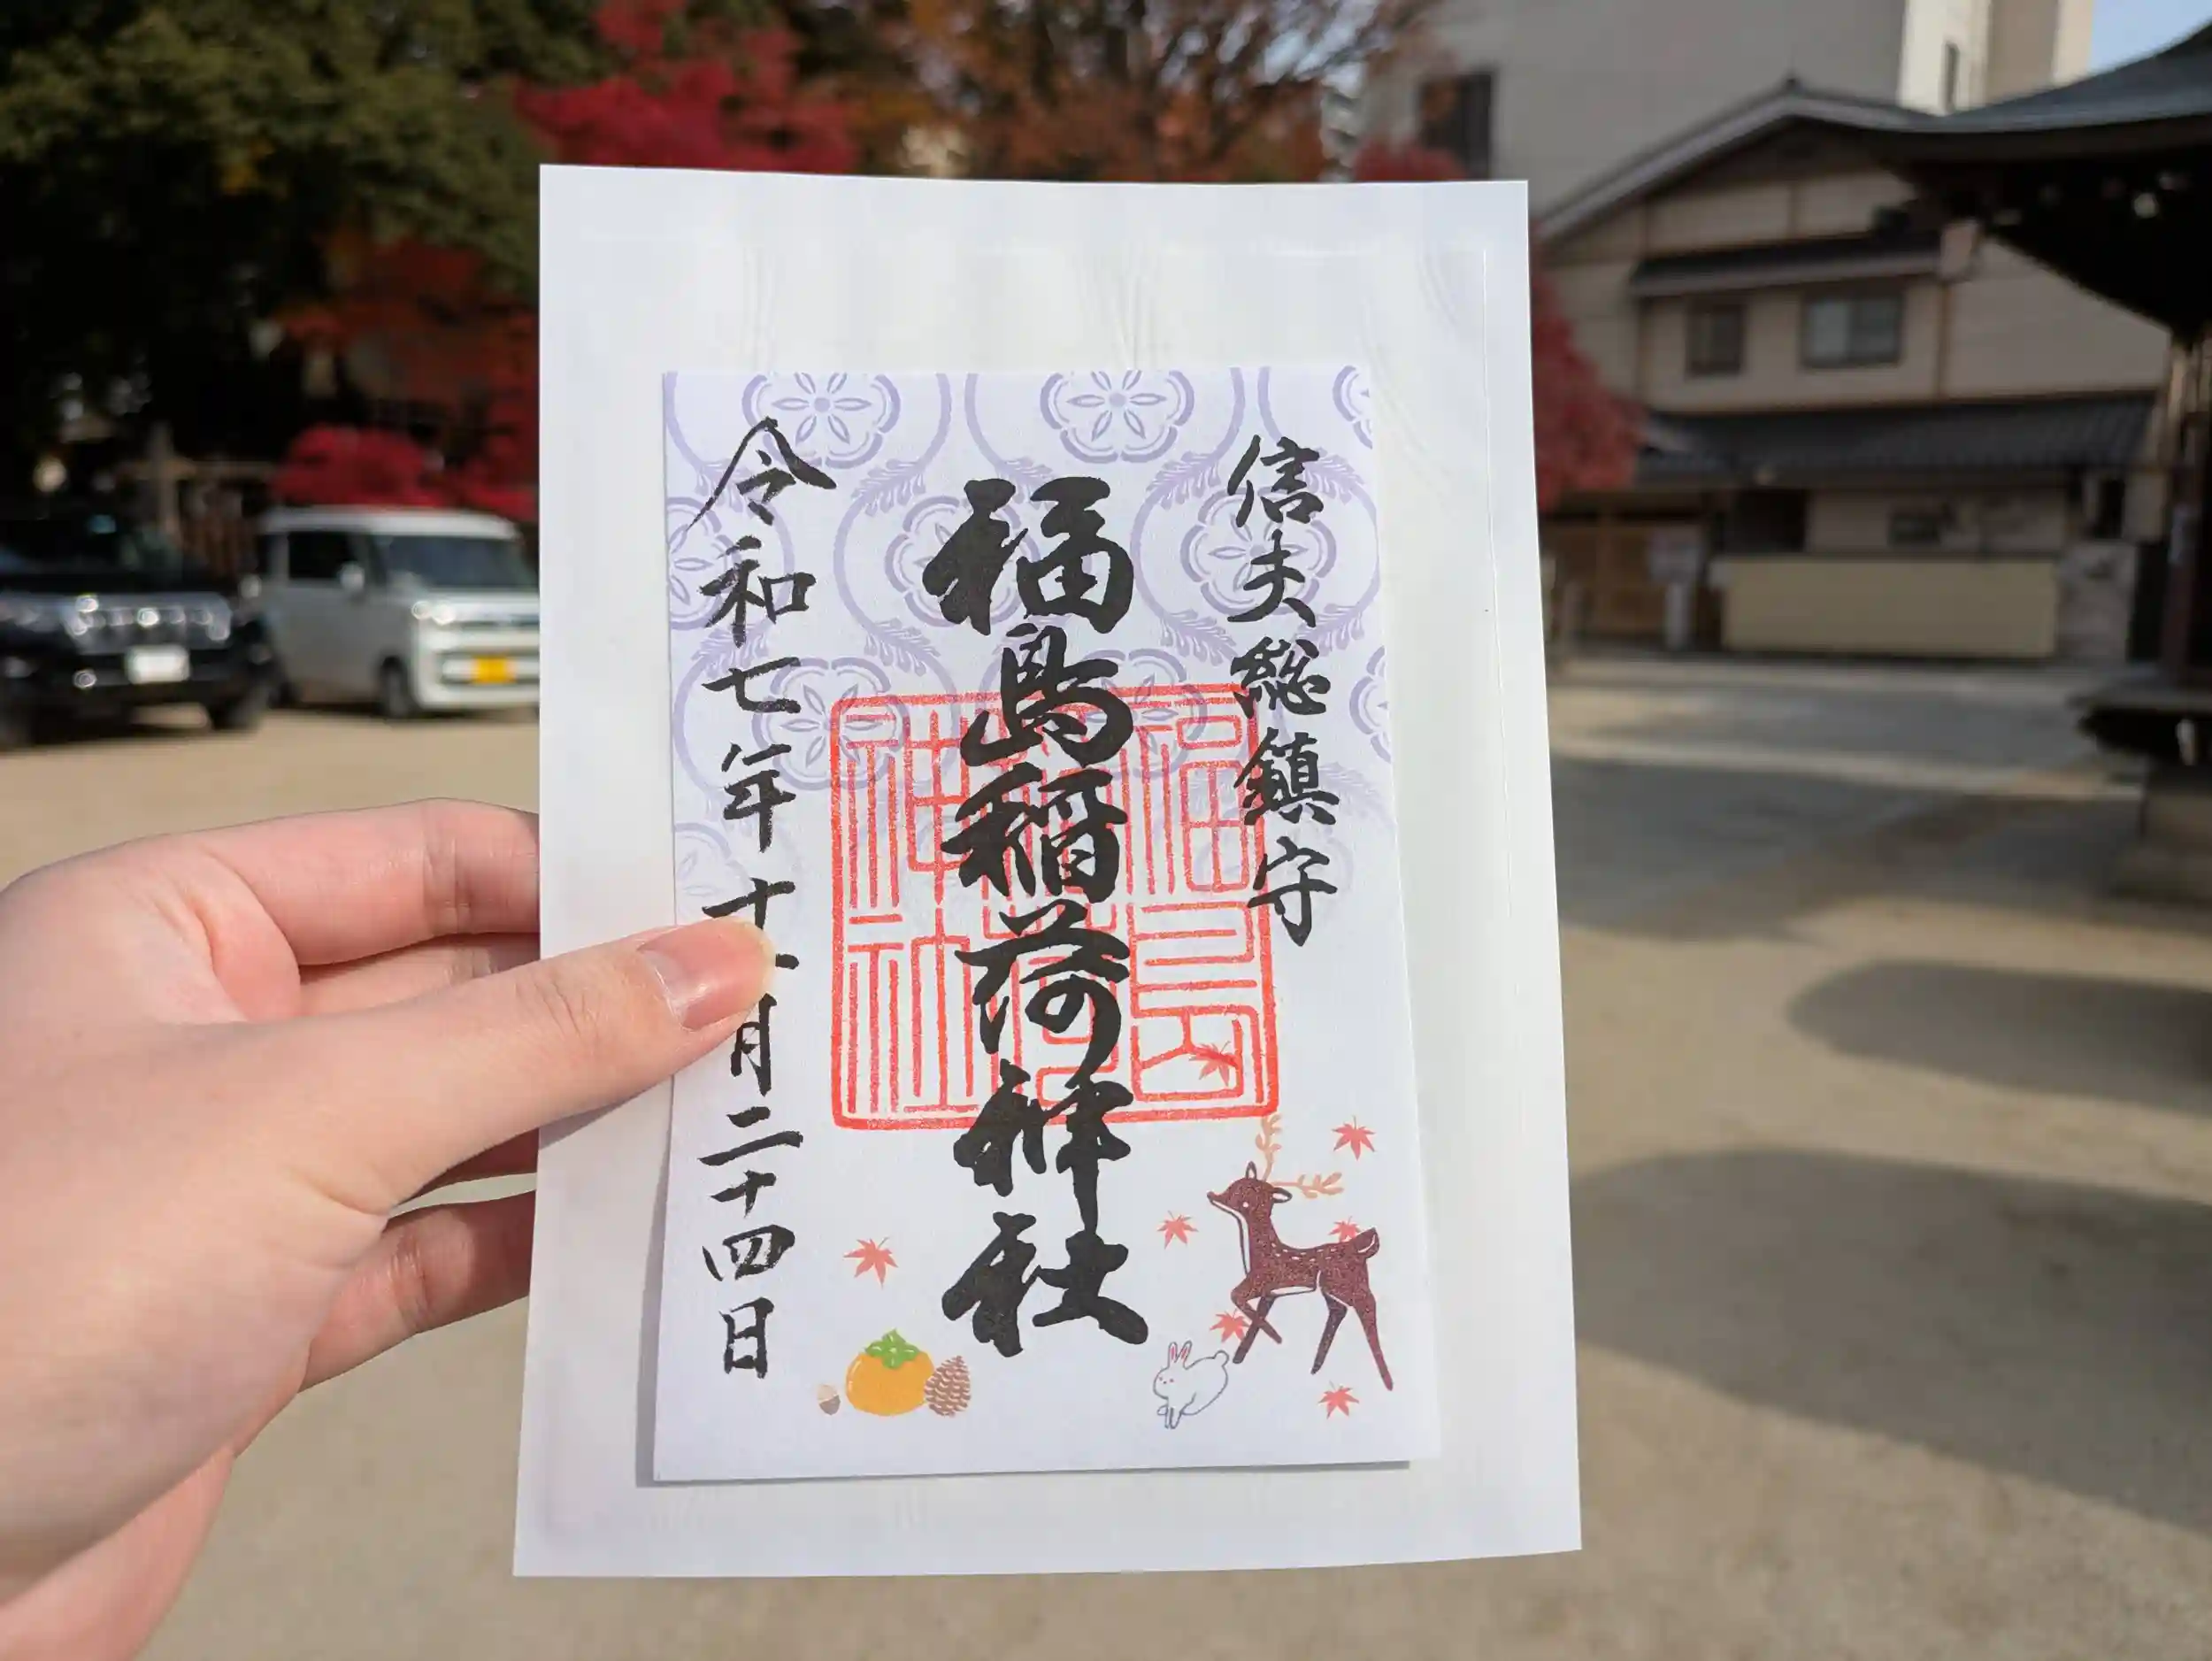 信夫総鎮守
福島稲荷神社
令和七年十一月二十四日
福島稲荷神社